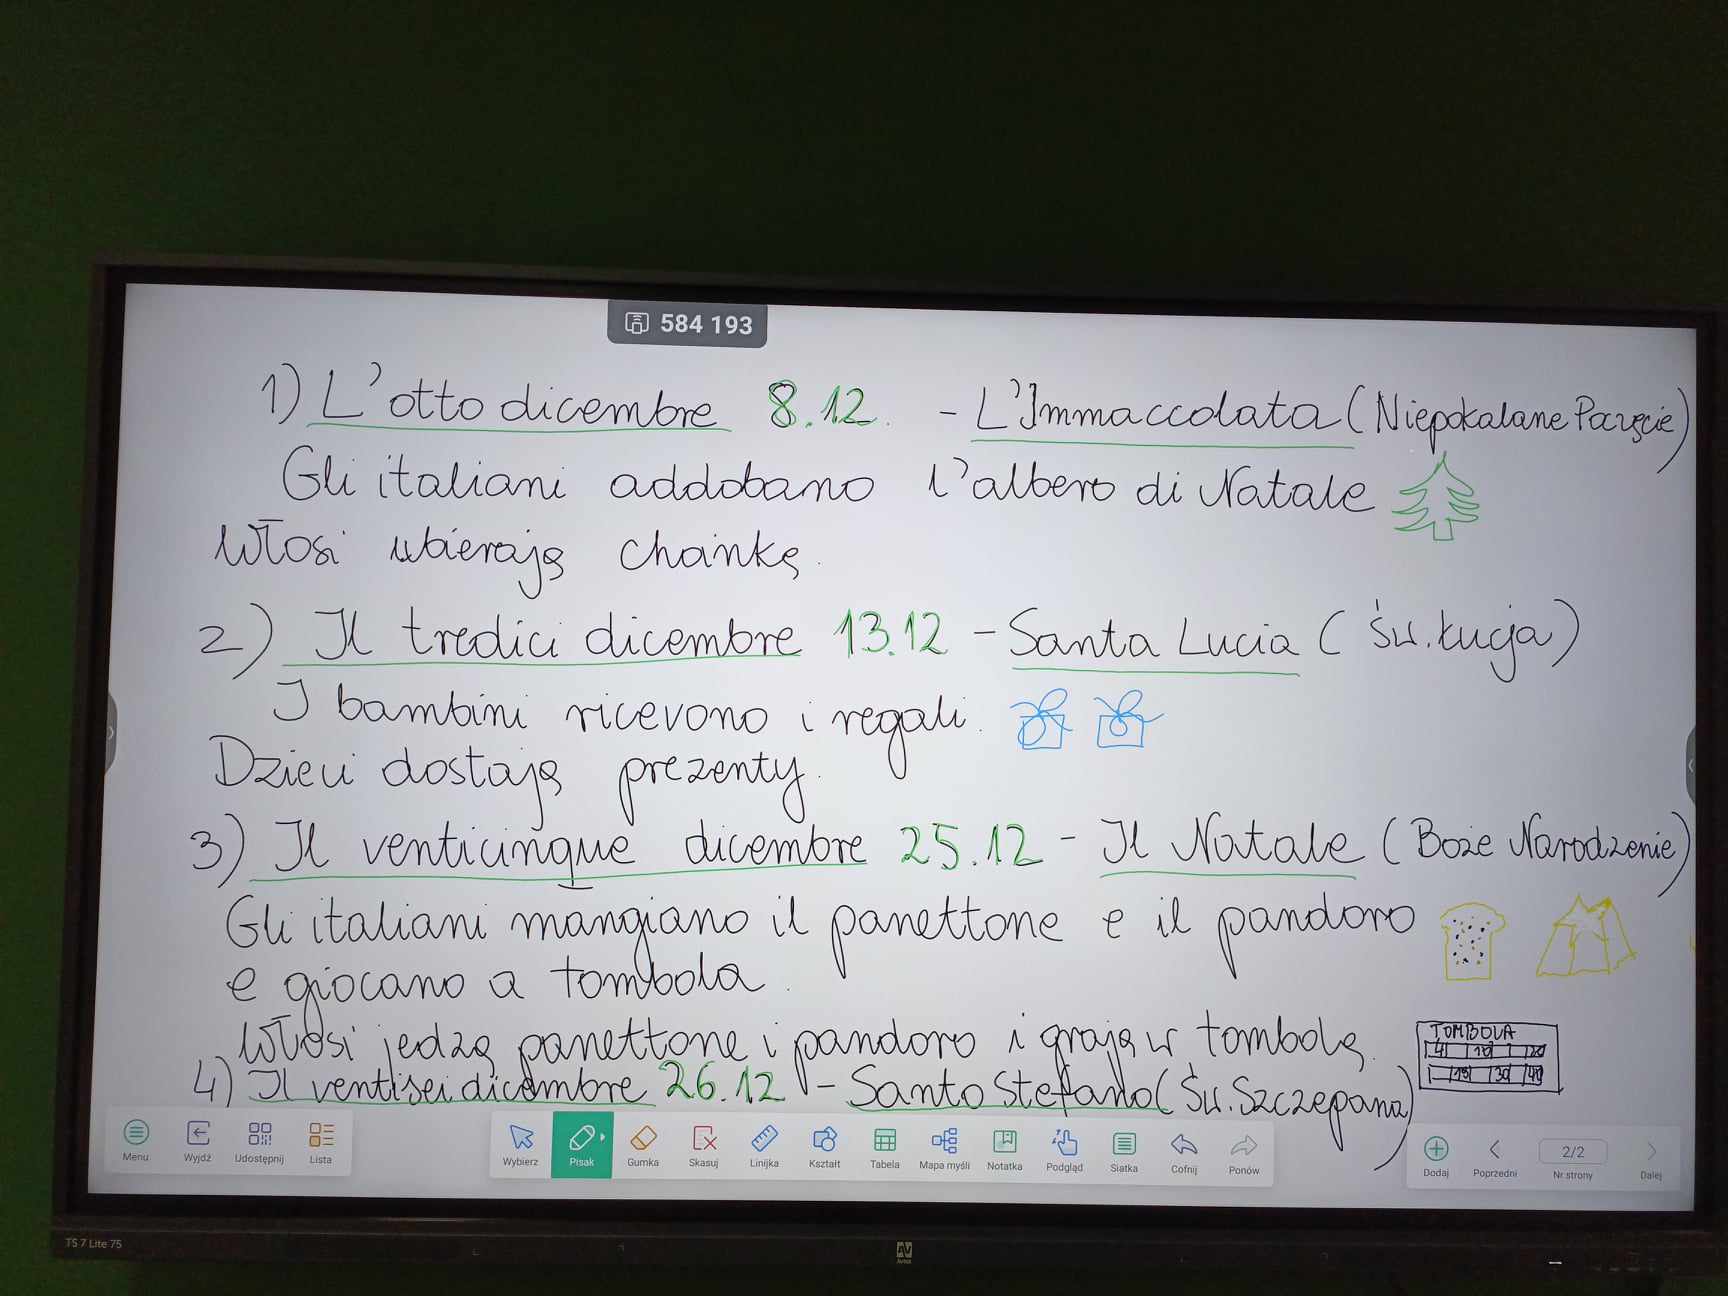 584 193
1) L'otto dicembre 8.12. - L'Immaccolata (Niepokalane Poczęcie)
Gli italiani addobano l'albero di Natale
Włosi ubierają choinkę.
2) Il tredici dicembre 13.12 - Santa Lucia (św. Łucja)
I bambini ricevono i regali.
Dzieci dostają prezenty.
3) Il venticinque dicembre 25.12 - Il Natale (Boże Narodzenie)
Gli italiani mangiano il panettone e il pandoro
e giocano a tombola.
Włosi jedzą panettone i pandoro i grają w tombolę.
TOMBOLA
4) Il ventisei dicembre 26.12 - Santo Stefano (Św. Szczepana)
Menu Wyjdź Udostępnij Lista Wybierz Pisak Gumka Skasuj Linijka Kształt Tabela Mapa myśli Notatka Podgląd Siatka Cofnij Ponów Dodaj Poprzedni 2/2 Nr strony Dalej
TS 7 Lite 75
AV
Avtek